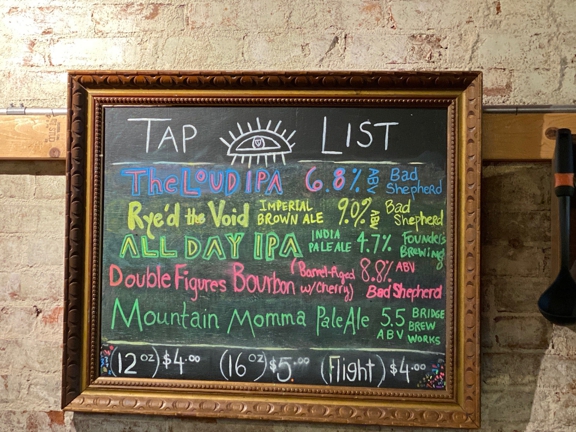 TAP LIST
The LOUD IPA 6.8% ABV Bad Shepherd
Rye'd the Void IMPERIAL BROWN ALE 9.0% ABV Bad Shepherd
ALL DAY IPA INDIA PALE ALE 4.7% Founders BREWING
Double Figures Bourbon (Barrel-Aged w/Cherry) 8.8% ABV Bad Shepherd
Mountain Momma Pale Ale 5.5 ABV BRIDGE BREW WORKS
(12 oz) $4.00 (16 oz) $5.00 (Flight) $4.00